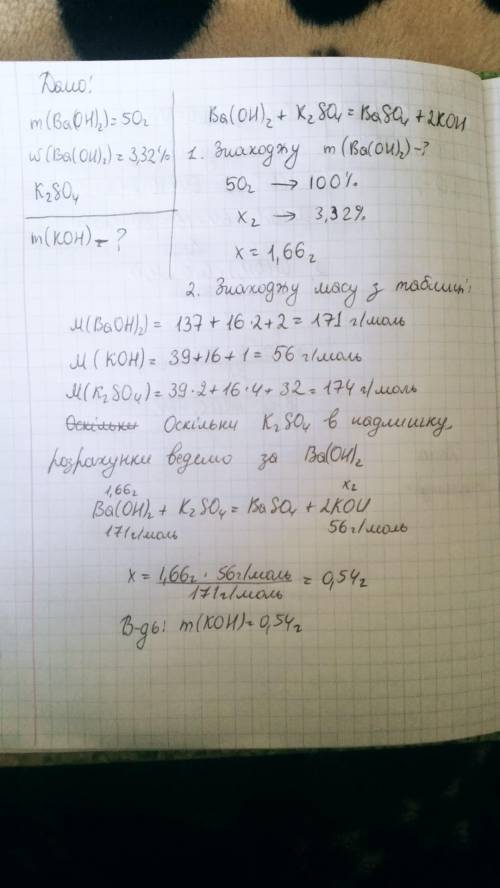 Дано:
m(Ba(OH)₂) = 50г
w(Ba(OH)₂) = 3,32%
K₂SO₄
m(KOH) - ?
Ba(OH)₂ + K₂SO₄ = BaSO₄ + 2KOH
1. Знаходжу m(Ba(OH)₂) - ?
50г → 100%
xг → 3,32%
x = 1,66г
2. Знаходжу масу з таблиці:
M(Ba(OH)₂) = 137 + 16·2 + 2 = 171 г/моль
M(KOH) = 39 + 16 + 1 = 56 г/моль
M(K₂SO₄) = 39·2 + 16·4 + 32 = 174 г/моль
Оскільки Оскільки K₂SO₄ в надлишку,
розрахунки ведемо за Ba(OH)₂
1,66г xг
Ba(OH)₂ + K₂SO₄ = BaSO₄ + 2KOH
171г/моль 56г/моль
x = 1,66г · 56г/моль / 171г/моль = 0,54г
В-дь: m(KOH) = 0,54г